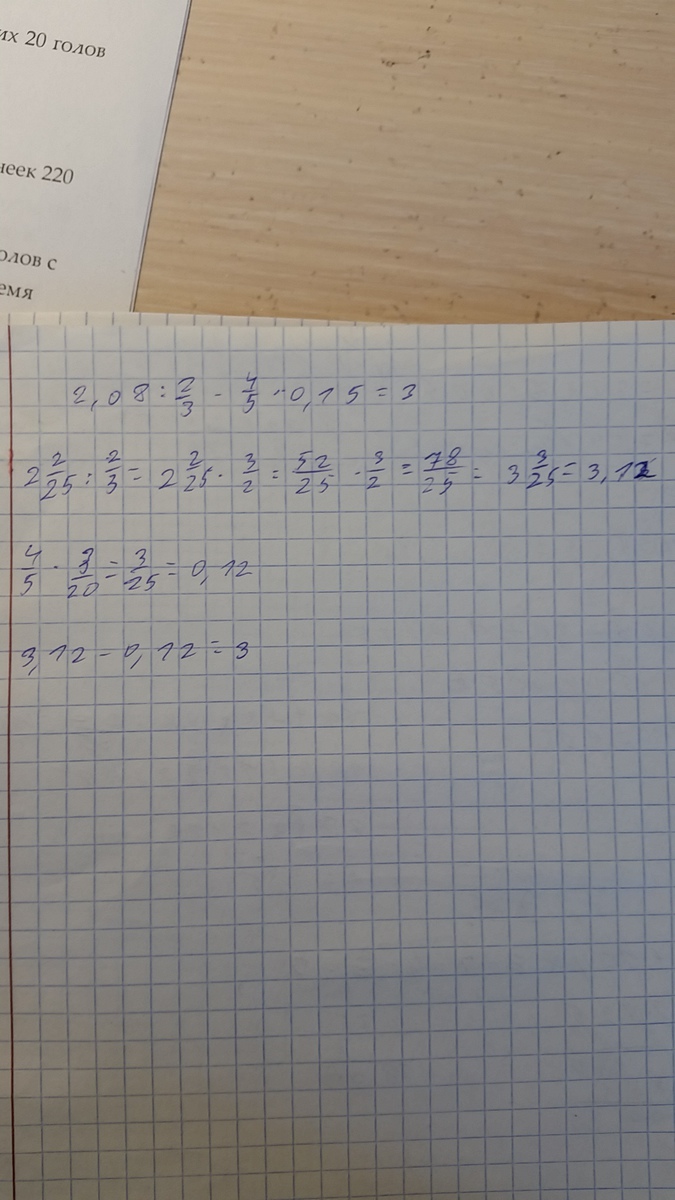 их 20 голов
неек 220
олов с
емя
2,08 : 2/3 - 4/5 · 0,15 = 3
2 2/25 : 2/3 = 2 2/25 · 3/2 = 52/25 · 3/2 = 78/25 = 3 3/25 = 3,12
4/5 · 3/20 = 3/25 = 0,12
3,12 - 0,12 = 3